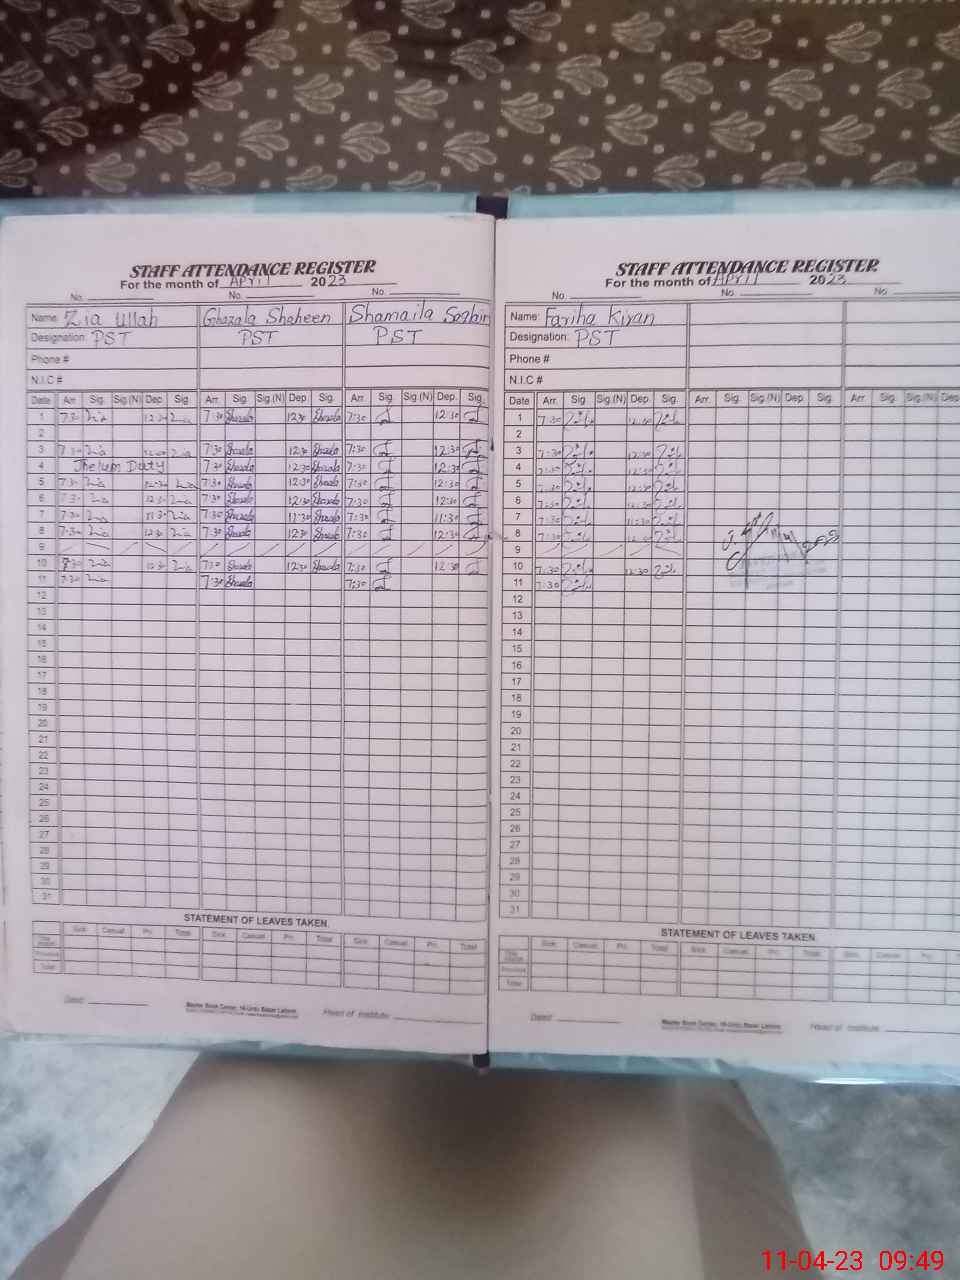 STAFF ATTENDANCE REGISTER
For the month of April 2023
No. No. No.
Name: Zia Ullah Ghazala Shaheen Shamaila
Designation: PST PST PST
Phone #
N.I.C #
Date Arr. Sig. Sig.(N) Dep. Sig. Arr. Sig. Sig.(N) Dep. Sig. Arr. Sig. Sig.(N) Dep. Sig.
1 7:30 Zia 12:30 Zia 7:30 12:30 7:30 12:30
2
3 7:30 Zia Zia 7:30 12:30 7:30 12:30
4 Jhelum Duty 7:30 12:30 7:30 12:30
5 7:30 Zia 12:30 Zia 7:30 12:30 7:30 12:30
6 7:30 Zia 12:30 Zia 7:30 12:30 7:30 12:30
7 7:30 Zia 11:30 Zia 7:30 7:30 11:30
8 7:30 Zia 12:30 Zia 7:30 12:30 7:30 12:30
9
10 Zia 12:30 Zia 7:30 12:30 7:30 12:30
11 7:30 Zia 7:30 7:30
12
13
14
15
16
17
18
19
20
21
22
23
24
25
26
27
28
29
30
31
STATEMENT OF LEAVES TAKEN.
Sick Casual Pri. Total Sick Casual Pri. Total Sick Casual Pri. Total
This Month
Previous
Total
Dated:
Master Book Center, 16-Urdu Bazar Lahore.
Head of institute:
STAFF ATTENDANCE REGISTER
For the month of April 2023
No. No. No.
Name: Fariha Kiran
Designation: PST
Phone #
N.I.C #
Date Arr. Sig. Sig.(N) Dep. Sig. Arr. Sig. Sig.(N) Dep. Sig. Arr. Sig. Sig.(N) Dep.
1 7:30 12:30
2
3 7:30 12:30
4 7:30 12:30
5 7:30 12:30
6 7:30 12:30
7 7:30 11:30
8 7:30 12:30
9
10 7:30 12:30
11 7:30
12
13
14
15
16
17
18
19
20
21
22
23
24
25
26
27
28
29
30
31
STATEMENT OF LEAVES TAKEN.
Sick Casual Pri. Total Sick Casual Pri. Total Sick Casual Pri.
This Month
Previous
Total
Dated:
Master Book Center, 16-Urdu Bazar Lahore.
Head of institute:
11-04-23 09:49